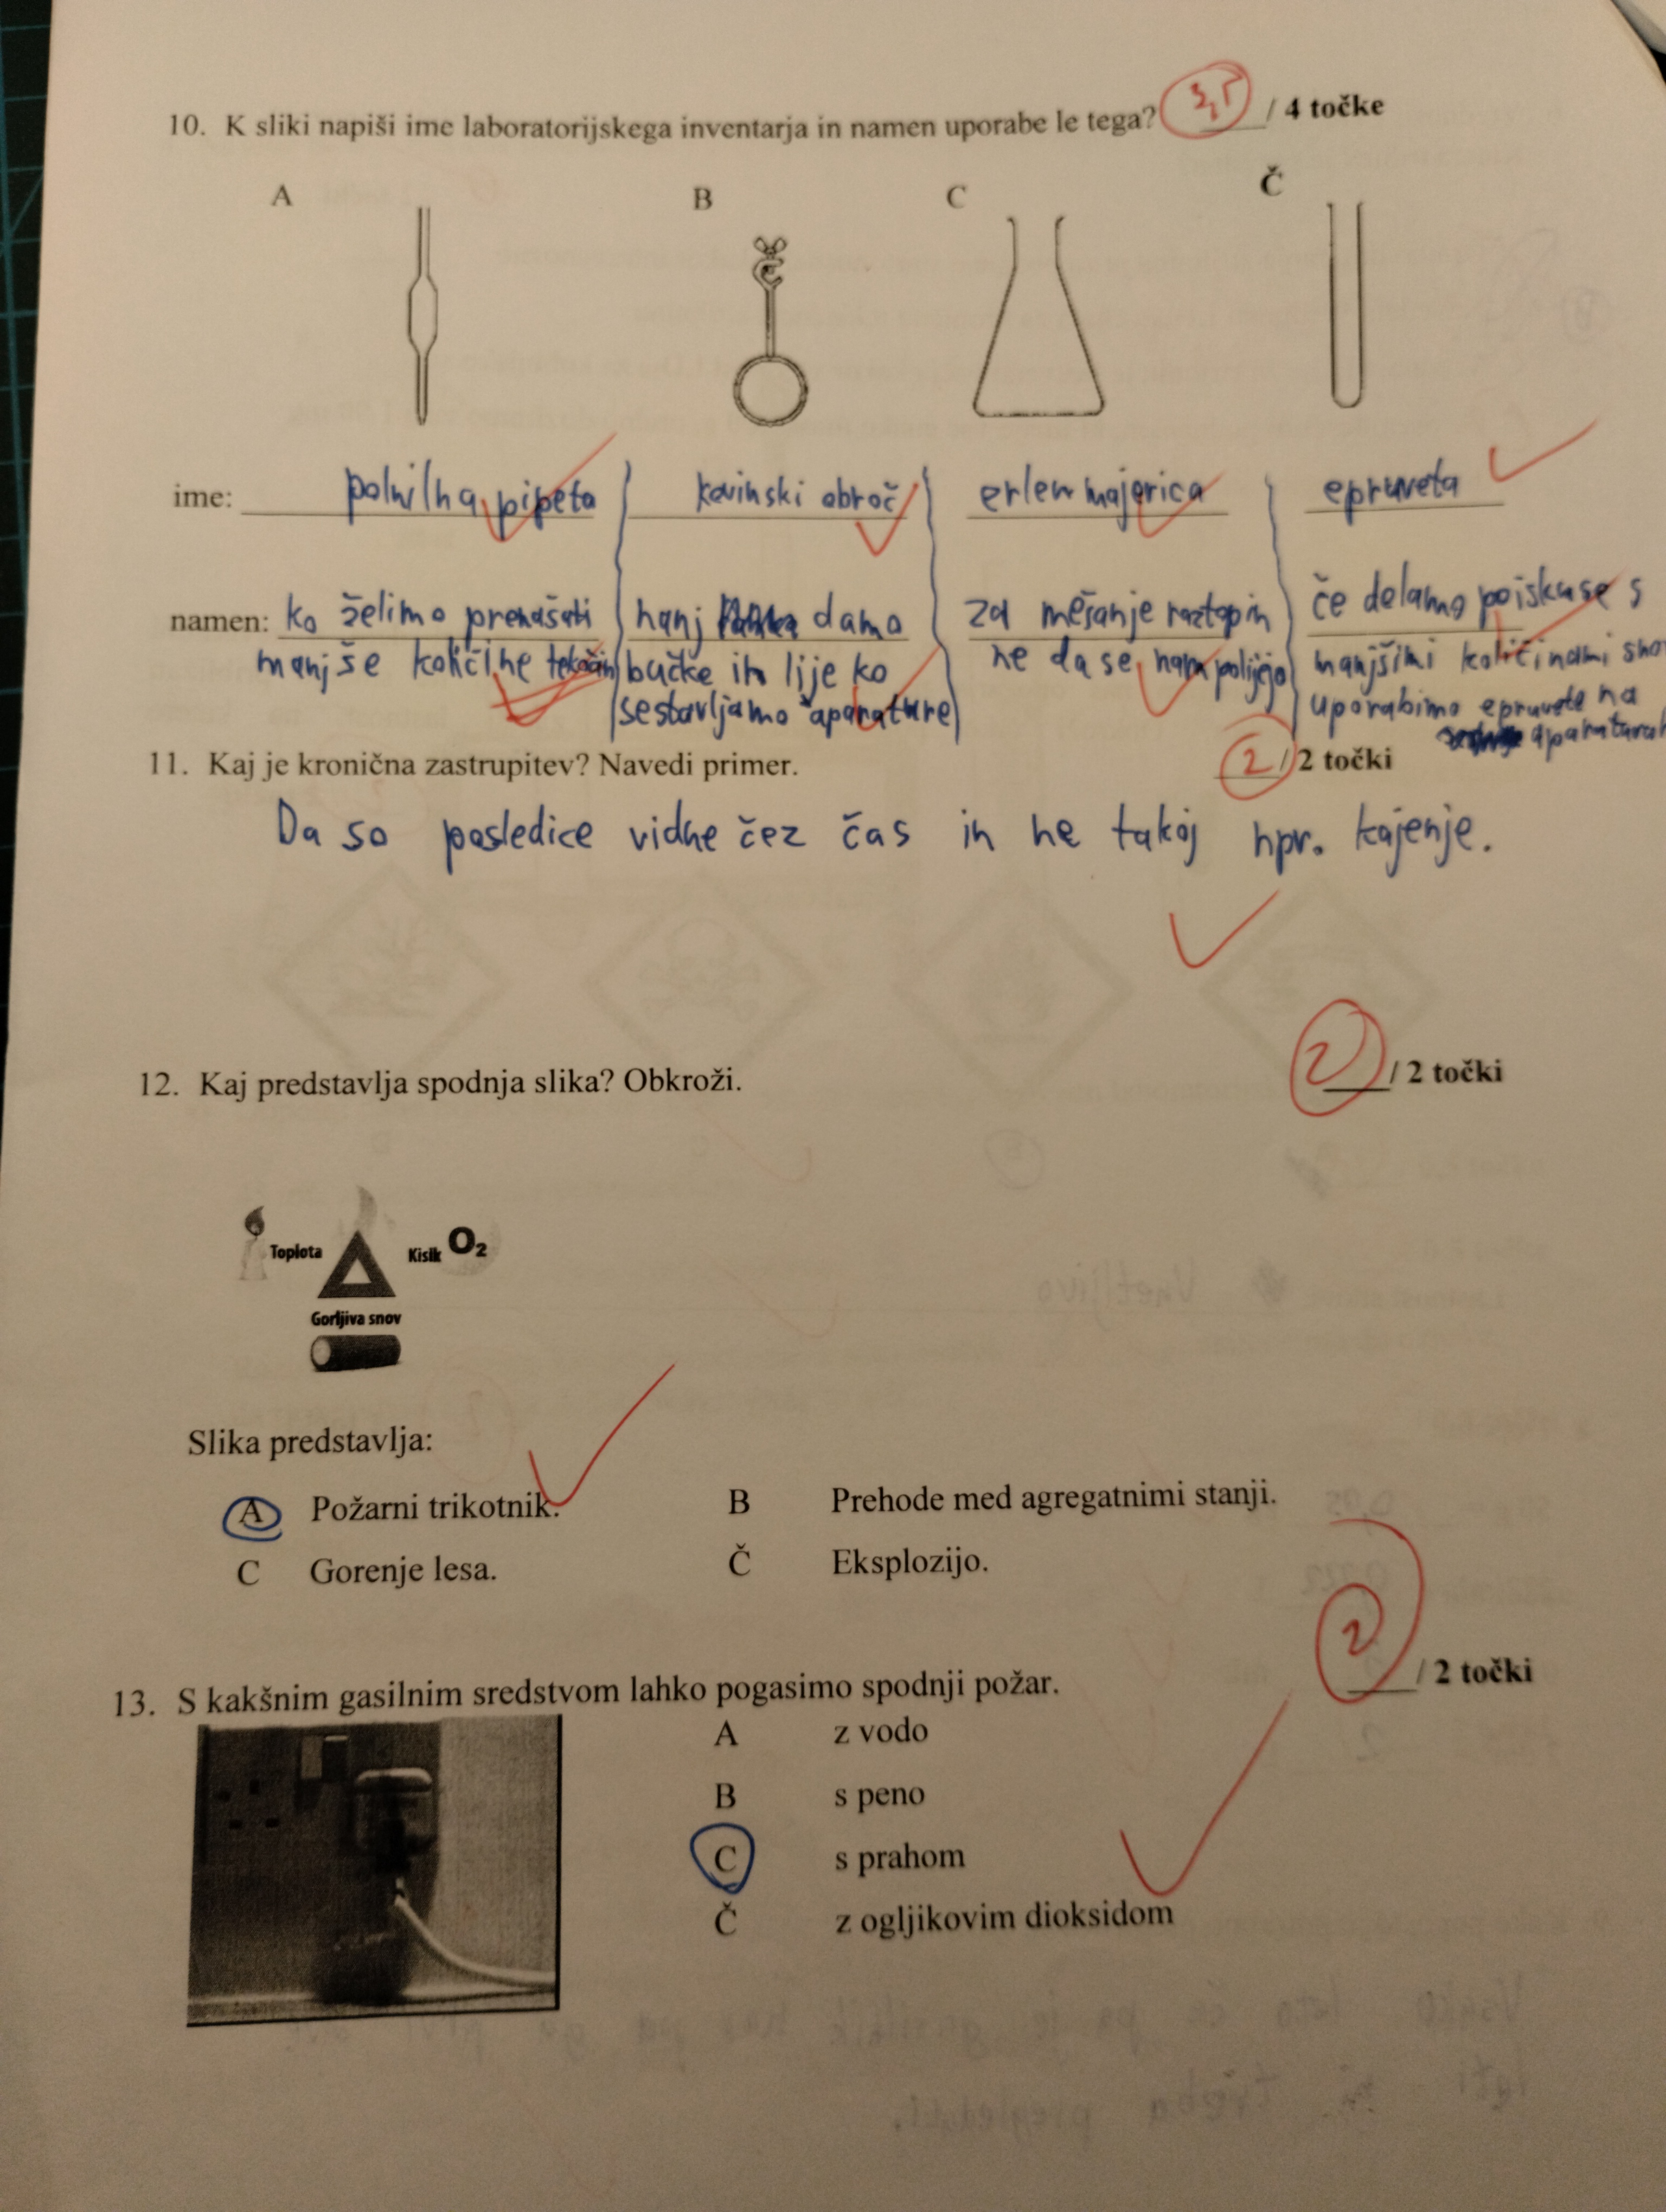 10. K sliki napiši ime laboratorijskega inventarja in namen uporabe le tega? 3,5 / 4 točke
A B C Č
ime: polnilna pipeta kovinski obroč erlenmajerica epruveta
namen: ko želimo prenašati manjše količine tekočin
nanj damo
bučke in lije ko
sestavljamo aparature
za mešanje raztopin
ne da se nam polijejo
če delamo poiskuse s
manjšimi količinami sno
uporabimo epruvete na
aparaturah
11. Kaj je kronična zastrupitev? Navedi primer. 2 / 2 točki
Da so posledice vidne čez čas in ne takoj npr. kajenje.
12. Kaj predstavlja spodnja slika? Obkroži. 2 / 2 točki
Toplota Kisik O₂
Gorljiva snov
Slika predstavlja:
A Požarni trikotnik. B Prehode med agregatnimi stanji.
C Gorenje lesa. Č Eksplozijo.
13. S kakšnim gasilnim sredstvom lahko pogasimo spodnji požar. 2 / 2 točki
A z vodo
B s peno
C s prahom
Č z ogljikovim dioksidom